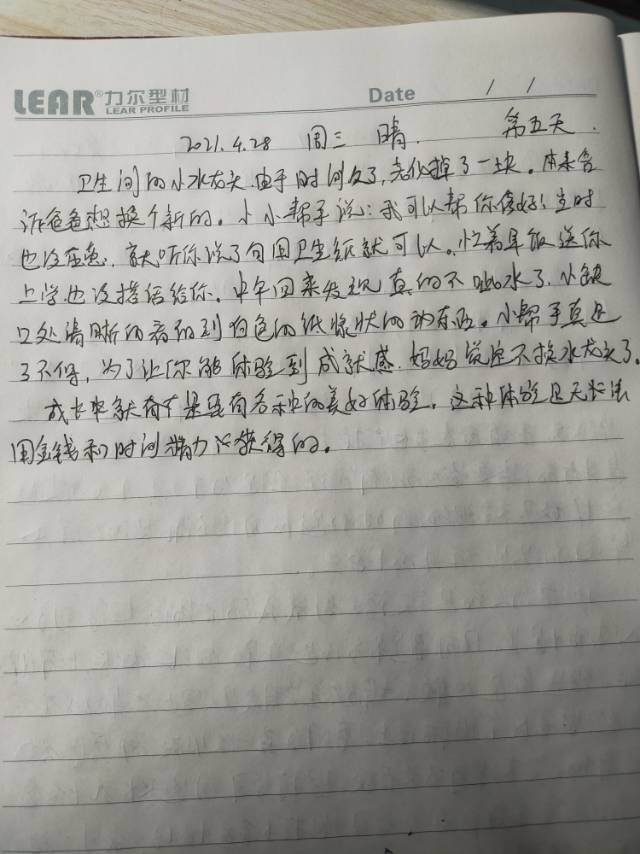 LEAR®力尔型材
LEAR PROFILE
Date / /
2021.4.28 周三 晴. 第五天.
卫生间的小水龙头由于时间久了,老化掉了一块。本来告
诉爸爸想换个新的。小小帮手说:我可以帮你修好!当时
也没在意,就听你说了句用卫生纸就可以。忙着早饭送你
上学也没搭话给你。中午回来发现真的不呲水了,小缺
口处清晰的看的到白色的纸浆状的东西。小帮手真是
了不得,为了让你能体验到成就感,妈妈觉定不换水龙头了。
成长本就是要有各种的美好体验,这种体验是无法
用金钱和时间精力获得的。